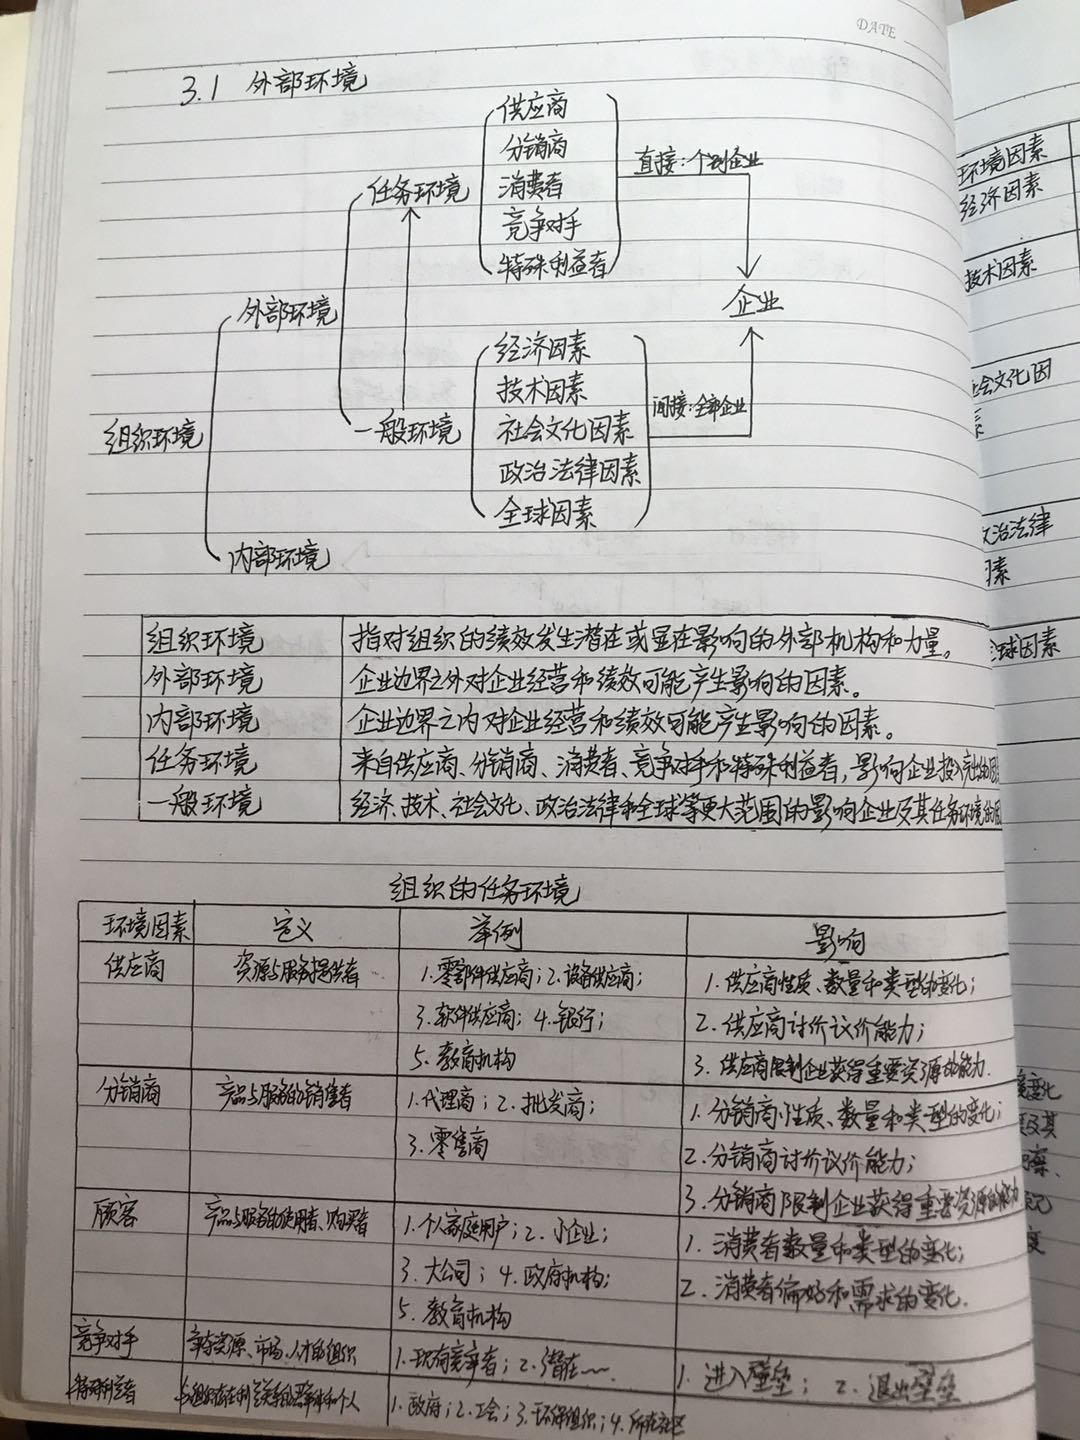 DATE
3.1 外部环境
供应商
分销商
消费者
竞争对手
特殊利益者
任务环境
直接:个别企业
外部环境
企业
经济因素
技术因素
社会文化因素
政治法律因素
全球因素
一般环境
间接:全部企业
组织环境
内部环境
组织环境 指对组织的绩效发生潜在或显在影响的外部机构和力量。
外部环境 企业边界之外对企业经营和绩效可能产生影响的因素。
内部环境 企业边界之内对企业经营和绩效可能产生影响的因素。
任务环境 来自供应商、分销商、消费者、竞争对手和特殊利益者,影响企业投入产出的
一般环境 经济、技术、社会文化、政治法律和全球等更大范围的影响企业及其任务环境的
组织的任务环境
环境因素 定义 举例 影响
供应商 资源与服务提供者 1.零部件供应商;2.设备供应商; 1.供应商性质、数量和类型的变化;
3.软件供应商;4.银行; 2.供应商讨价议价能力;
5.教育机构 3.供应商限制企业获得重要资源的能力.
分销商 产品与服务的销售者 1.代理商;2.批发商; 1.分销商性质、数量和类型的变化;
3.零售商 2.分销商讨价议价能力;
3.分销商限制企业获得重要资源的能力
顾客 产品与服务的使用者、购买者 1.个人家庭用户;2.小企业; 1.消费者数量和类型的变化;
3.大公司;4.政府机构; 2.消费者偏好和需求的变化.
5.教育机构
竞争对手 争夺资源、市场、人才的组织 1.现有竞争者;2.潜在~~. 1.进入壁垒;2.退出壁垒
特殊利益者 与组织存在利益关系的 和个人 1.政府;2.工会;3.环保组织;4.所在社区
环境因素
经济因素
技术因素
会文化因
治法律
球因素
变化
及其
度